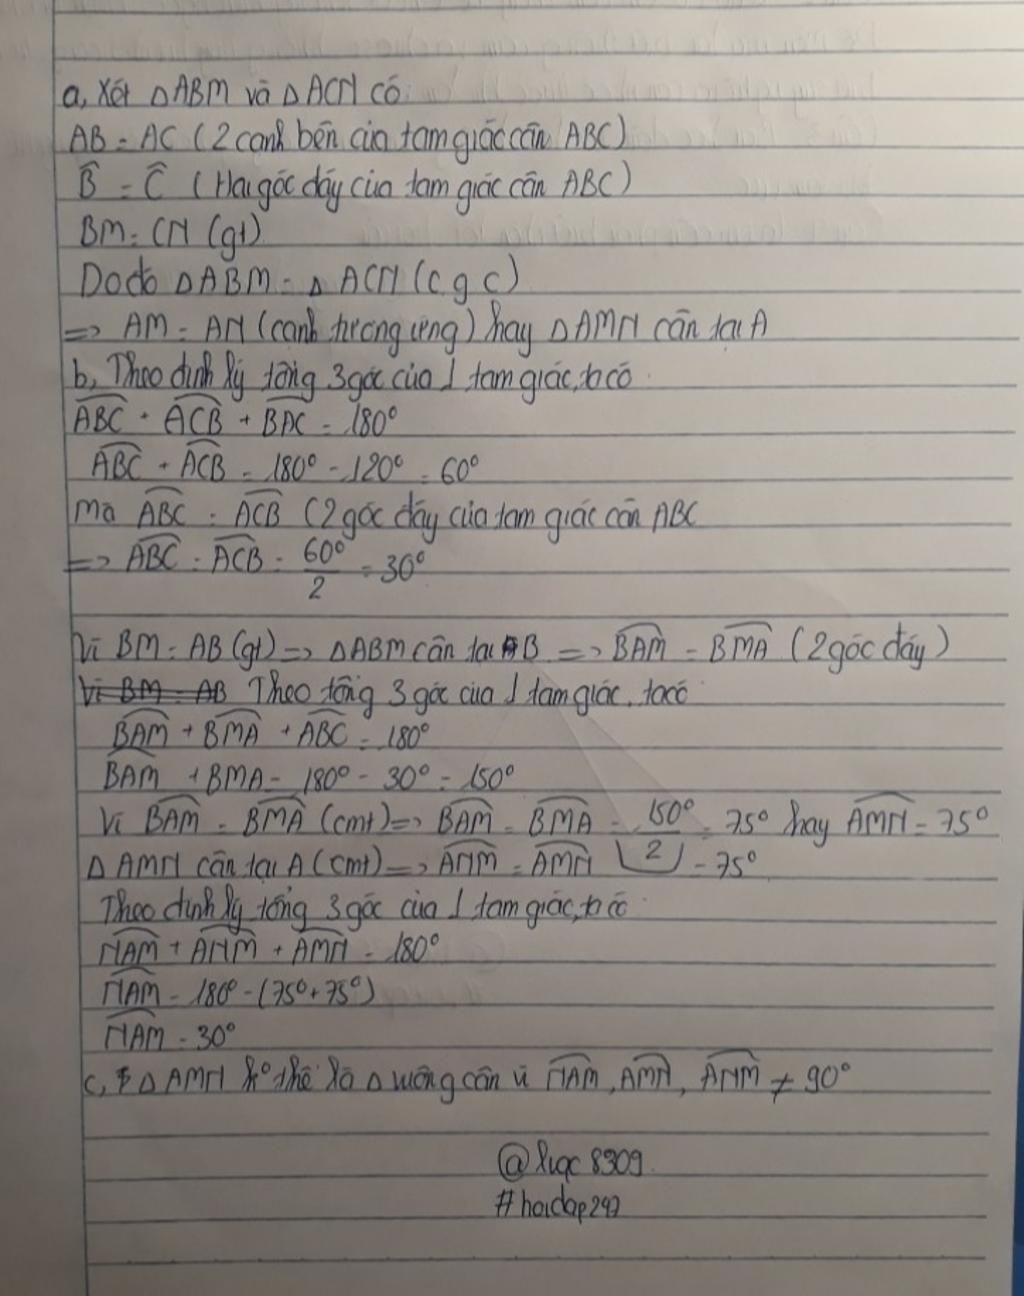 a, Xét △ABM và △ACN có:
AB = AC (2 cạnh bên của tam giác cân ABC)
B̂ = Ĉ (Hai góc đáy của tam giác cân ABC)
BM = CN (gt)
Do đó △ABM = △ACN (c g c)
=> AM = AN (cạnh tương ứng) hay △AMN cân tại A
b, Theo định lý tổng 3 góc của 1 tam giác, ta có
ABC + ACB + BAC = 180°
ABC + ACB = 180° - 120° = 60°
Mà ABC = ACB (2 góc đáy của tam giác cân ABC
=> ABC = ACB = 60°/2 = 30°
Vì BM = AB (gt) => △ABM cân tại B => BAM = BMA (2 góc đáy)
Vì BM = AB Theo tổng 3 góc của 1 tam giác, ta có
BAM + BMA + ABC = 180°
BAM + BMA = 180° - 30° = 150°
Vì BAM = BMA (cmt) => BAM = BMA = 150°/2 = 75° hay AMN = 75°
△AMN cân tại A (cmt) => ANM = AMN = 75°
Theo định lý tổng 3 góc của 1 tam giác, ta có
NAM + ANM + AMN = 180°
NAM = 180° - (75° + 75°)
NAM = 30°
c, △AMN k° thể là △ vuông cân vì NAM, AMN, ANM ≠ 90°
@luc8309
#hoidap247